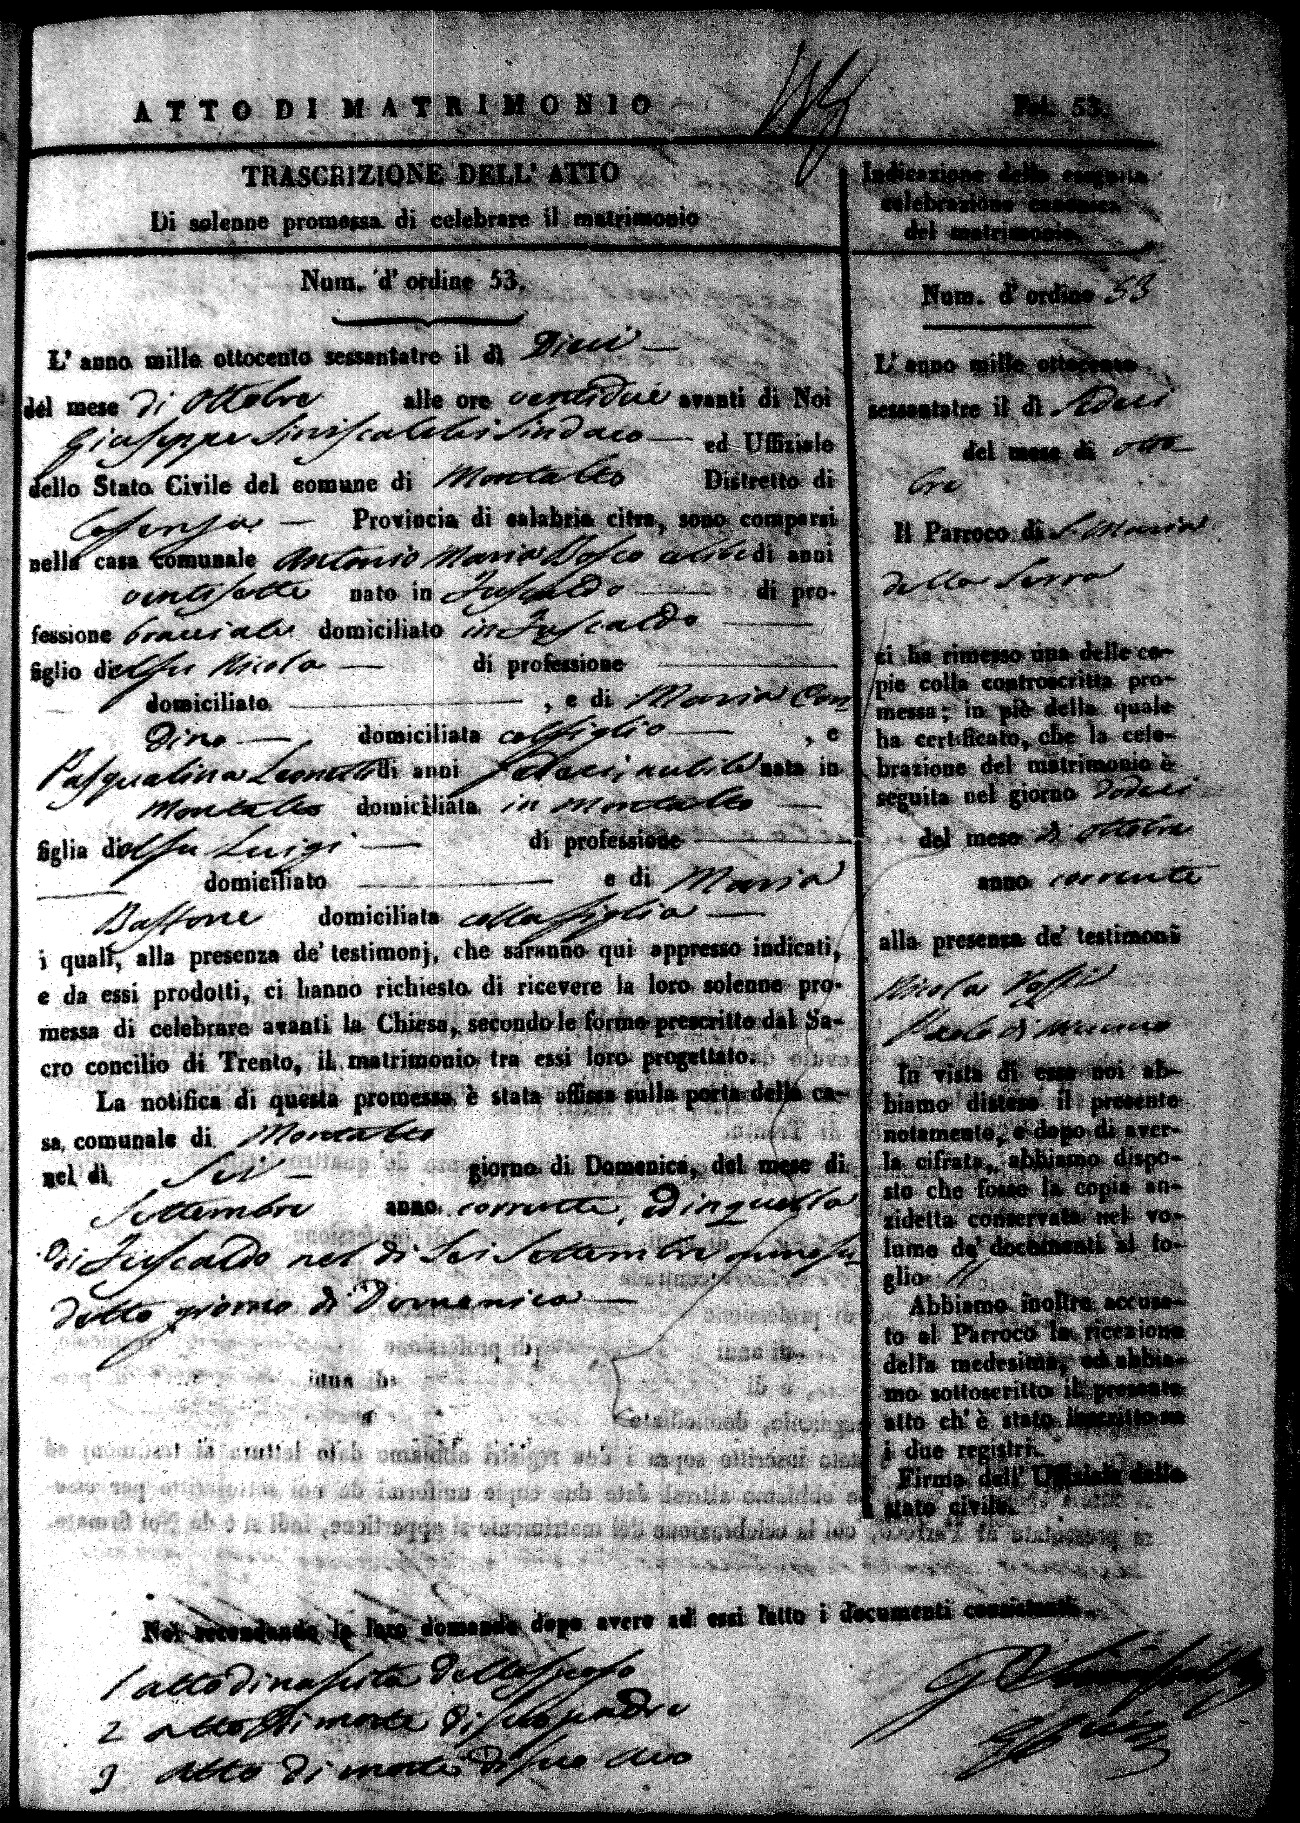 ATTO DI MATRIMONIO
Fol. 53.
TRASCRIZIONE DELL' ATTO
Di solenne promessa di celebrare il matrimonio
Num. d' ordine 53.
L' anno mille ottocento sessantatre il dì Dieci
del mese di Ottobre alle ore ventidue avanti di Noi
Giuseppe Siniscalchi Sindaco ed Uffiziale
dello Stato Civile del comune di Montalto Distretto di
Cosenza Provincia di calabria citra, sono comparsi
nella casa comunale Antonio Maria Bosco celibe di anni
ventisette nato in Fuscaldo di pro-
fessione bracciale domiciliato in Fuscaldo
figlio di Nicola di professione
domiciliato , e di Maria Con
dino domiciliata col figlio , e
Pasqualina di anni sedeci, nubile nata in
Montalto domiciliata in Montalto
figlia di Luigi di professione
domiciliato e di Maria
Bastone domiciliata colla figlia
i quali, alla presenza de' testimonj, che saranno qui appresso indicati,
e da essi prodotti, ci hanno richiesto di ricevere la loro solenne pro-
messa di celebrare avanti la Chiesa, secondo le forme prescritte dal Sa-
cro concilio di Trento, il matrimonio tra essi loro progettato.
La notifica di questa promessa è stata affissa sulla porta della ca-
sa comunale di Montalto
nel dì Sei giorno di Domenica, del mese di
Settembre anno corrente, ed in quella
di Fuscaldo nel dì Sei Settembre
detto giorno di Domenica
Indicazione della eseguita
celebrazione canonica
del matrimonio.
Num. d' ordine 53
L' anno mille ottocento
sessantatre il dì Sedeci
del mese di otto
bre
Il Parroco di S. Maria
della Serra
ci ha rimesso una delle co-
pie colla controscritta pro-
messa; in piè della quale
ha certificato, che la cele-
brazione del matrimonio è
seguita nel giorno dodeci
del mese di Ottobre
anno corrente
alla presenza de' testimoni
Nicola
Paolo di
In vista di essa noi ab-
biamo disteso il presente
notamento, e dopo di aver-
la cifrata, abbiamo dispo-
sto che fosse la copia an-
zidetta conservata nel vo-
lume de' documenti al fo-
glio
Abbiamo inoltre accusa-
to al Parroco la ricezione
della medesima, ed abbia-
mo sottoscritto il presente
atto ch' è stato inscritto su
i due registri.
Firma dell' Uffiziale dello
stato civile.
Noi secondando la loro domanda dopo avere ad essi fatto i documenti consistenti
1 atto di nascita dello sposo
2 atto di morte di suo padre
3 atto di morte di suo avo